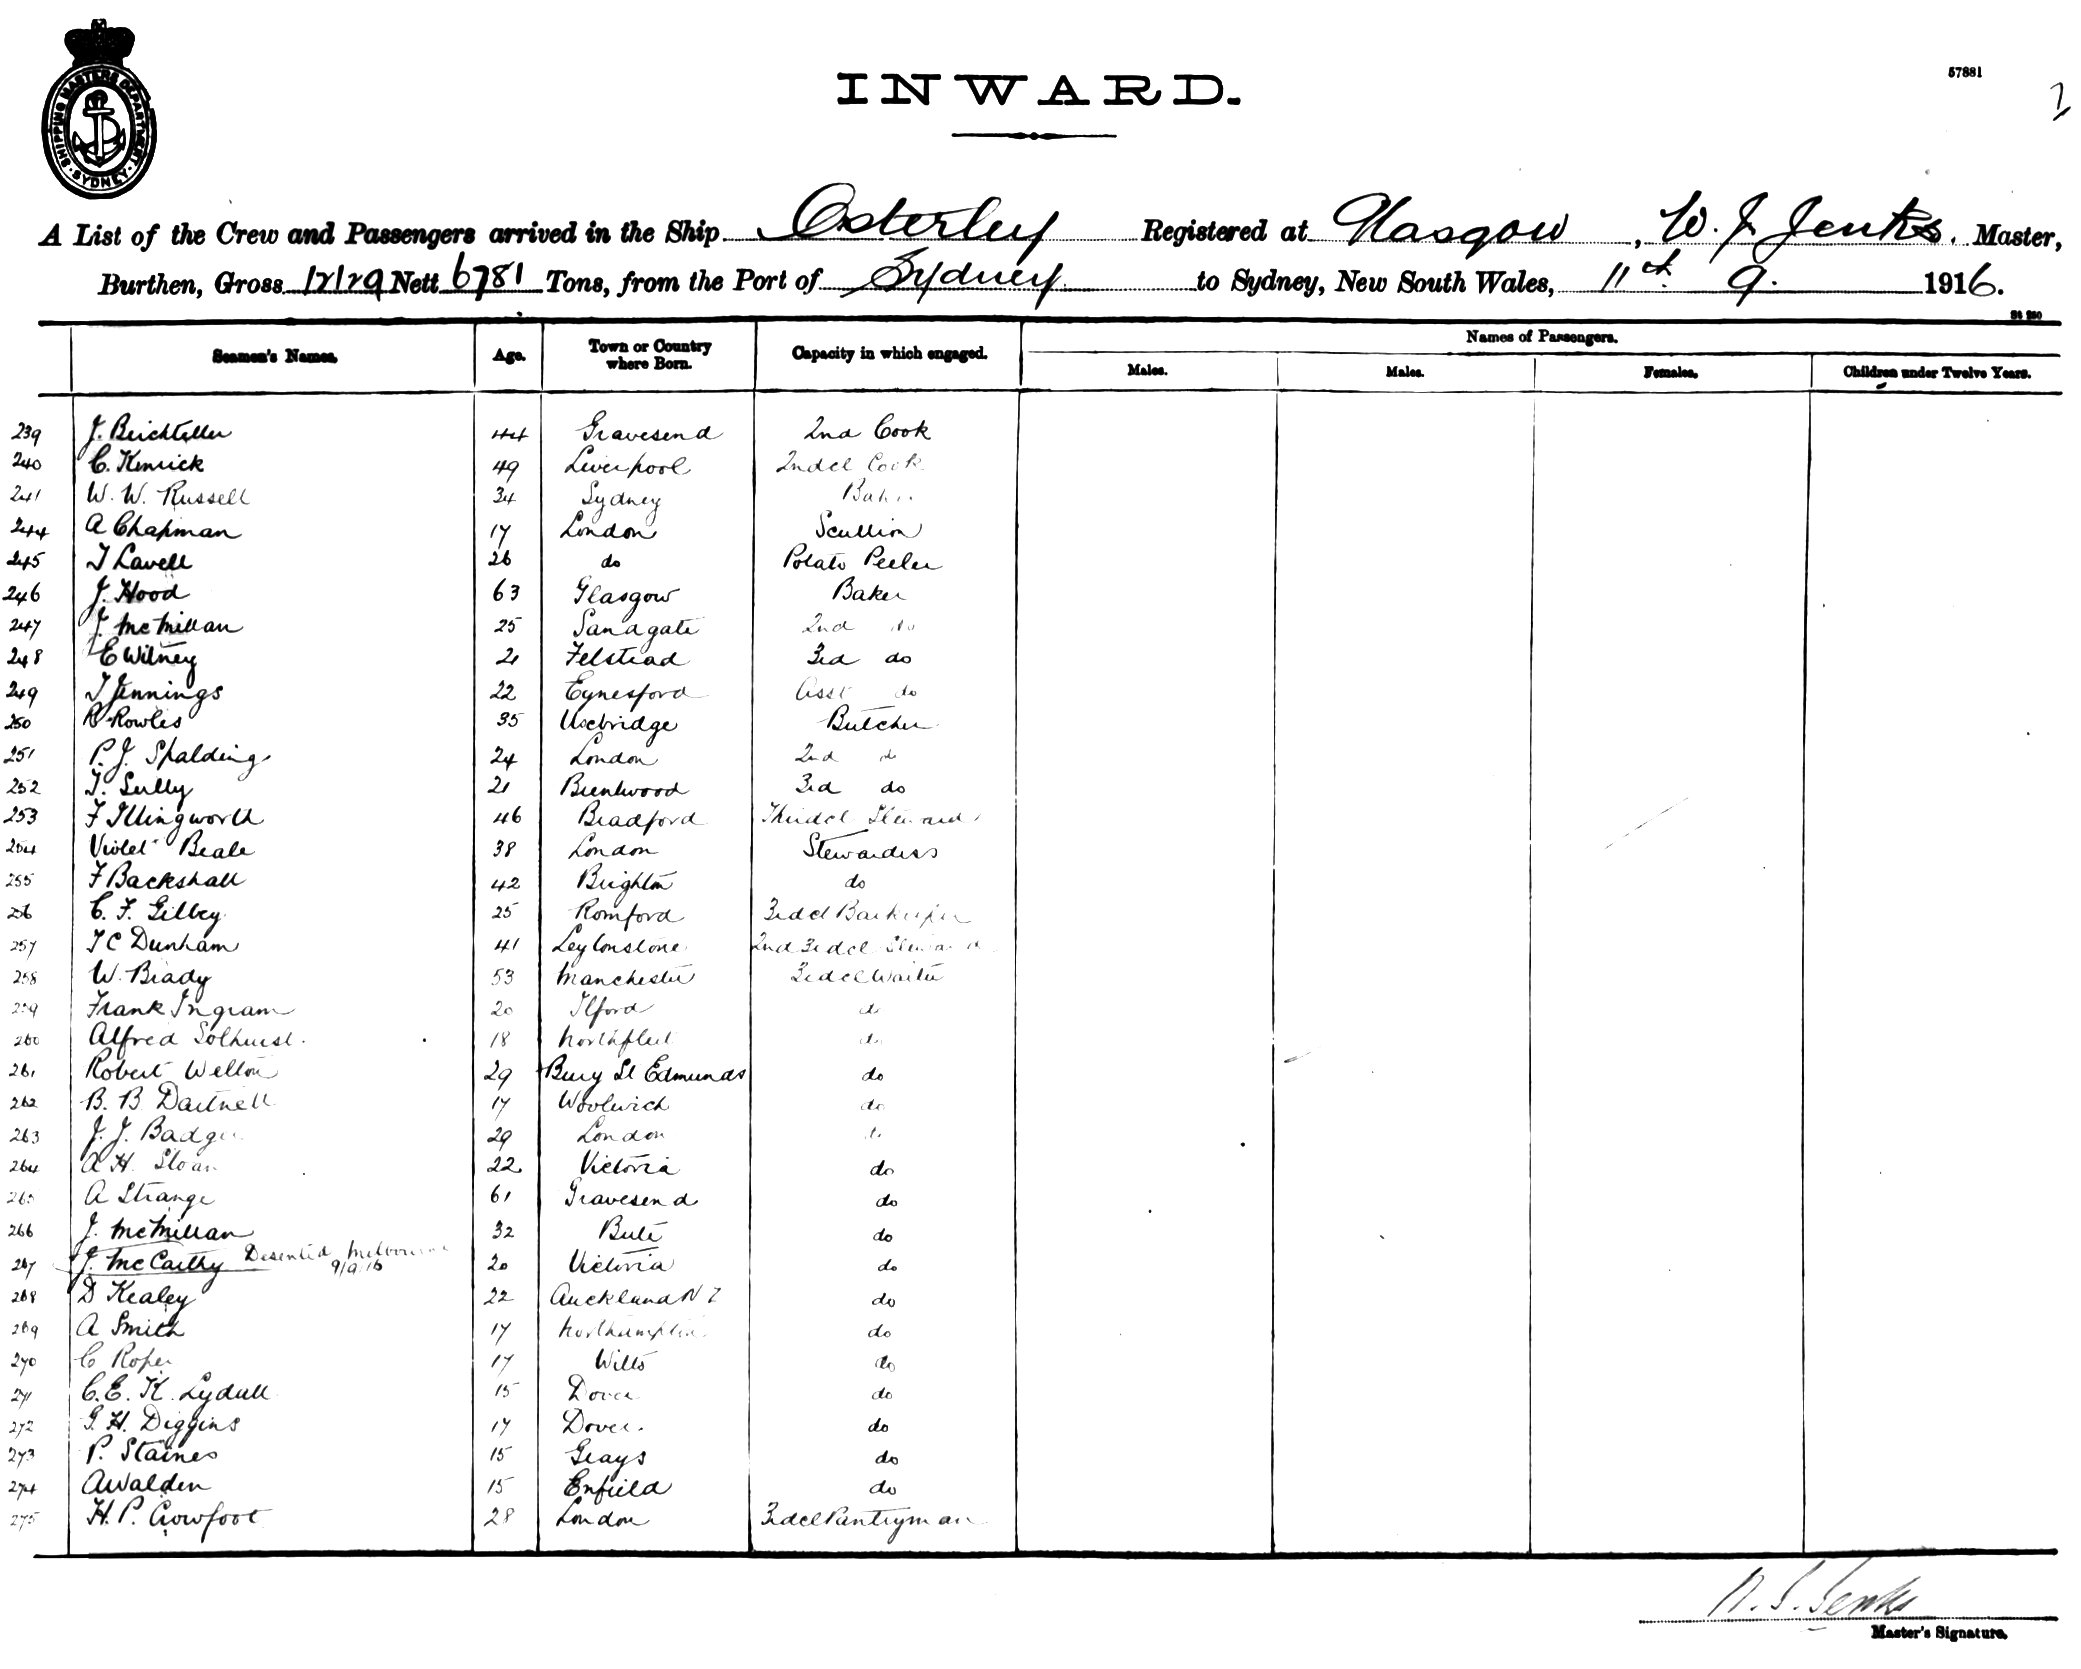 SHIPPING MASTERS DEPARTMENT · SYDNEY ·
INWARD.
57881
2
A List of the Crew and Passengers arrived in the Ship Osterley Registered at Glasgow, W. J. Jenks. Master,
Burthen, Gross 12129 Nett 6781 Tons, from the Port of Sydney to Sydney, New South Wales, 11th 9. 1916.
Seamen's Names. Age. Town or Country where Born. Capacity in which engaged. Names of Passengers.
Males. Males. Females. Children under Twelve Years.
239 J. 44 Gravesend 2nd Cook
240 C. Kenrick 49 Liverpool 2ndcl Cook
241 W. W. Russell 34 Sydney Baker
244 A Chapman 17 London Scullion
245 T Lavell 26 do Potato Peeler
246 J. Hood 63 Glasgow Baker
247 J. McMillan 25 Sandgate 2nd do
248 E Witney 21 Felstead 3rd do
249 T Jennings 22 Eynesford Asst do
250 R Rowles 35 Uxbridge Butcher
251 P. J. Spalding 24 London 2nd do
252 T. Sully 21 Brentwood 3rd do
253 F Illingworth 46 Bradford Thirdcl Steward
254 Violet Beale 38 London Stewardess
255 F Backshall 42 Brighton do
256 C. F. Gilbey 25 Romford 3rdcl Barkeeper
257 T C Dunham 41 Leytonstone 2nd 3rdcl Steward
258 W. Brady 53 Manchester 3rdcl Waiter
259 Frank Ingram 20 Ilford do
260 Alfred Solhurst 18 Northfleet do
261 Robert Welton 29 Bury St Edmunds do
262 B. B Dartnell 17 Woolwich do
263 J. J. Badger 29 London do
264 A H. Sloan 22 Victoria do
265 A Strange 61 Gravesend do
266 J. McMillan 32 Bute do
267 J. McCarthy Deserted Melbourne 9/9/16 20 Victoria do
268 D Kealey 22 Auckland N Z do
269 A Smith 17 Northampton do
270 C Roper 17 Wilts do
271 C. E. K. Lydall 15 Dover do
272 G. H. Diggins 17 Dover. do
273 P. Staines 15 Grays do
274 A Walden 15 Enfield do
275 H. P. Crowfoot 28 London 3rdcl Pantryman
W. J. Jenks
Master's Signature.